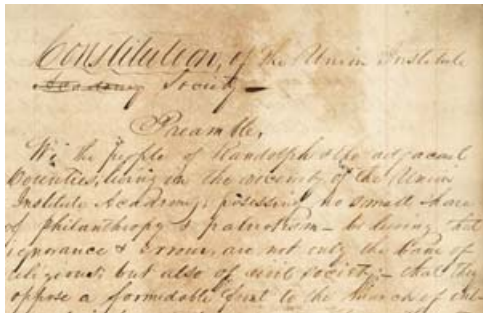 Constitution, of the Union Institute
Academy Society —
Preamble,
We the people of Randolph & the adjacent
Counties, living in the vicinity of the Union
Institute Academy, possessing no small share
of philanthropy & patriotism – believing that
ignorance & errour, are not only the bane of
religious, but also of civil society, – that they
oppose a formidable front to the march of